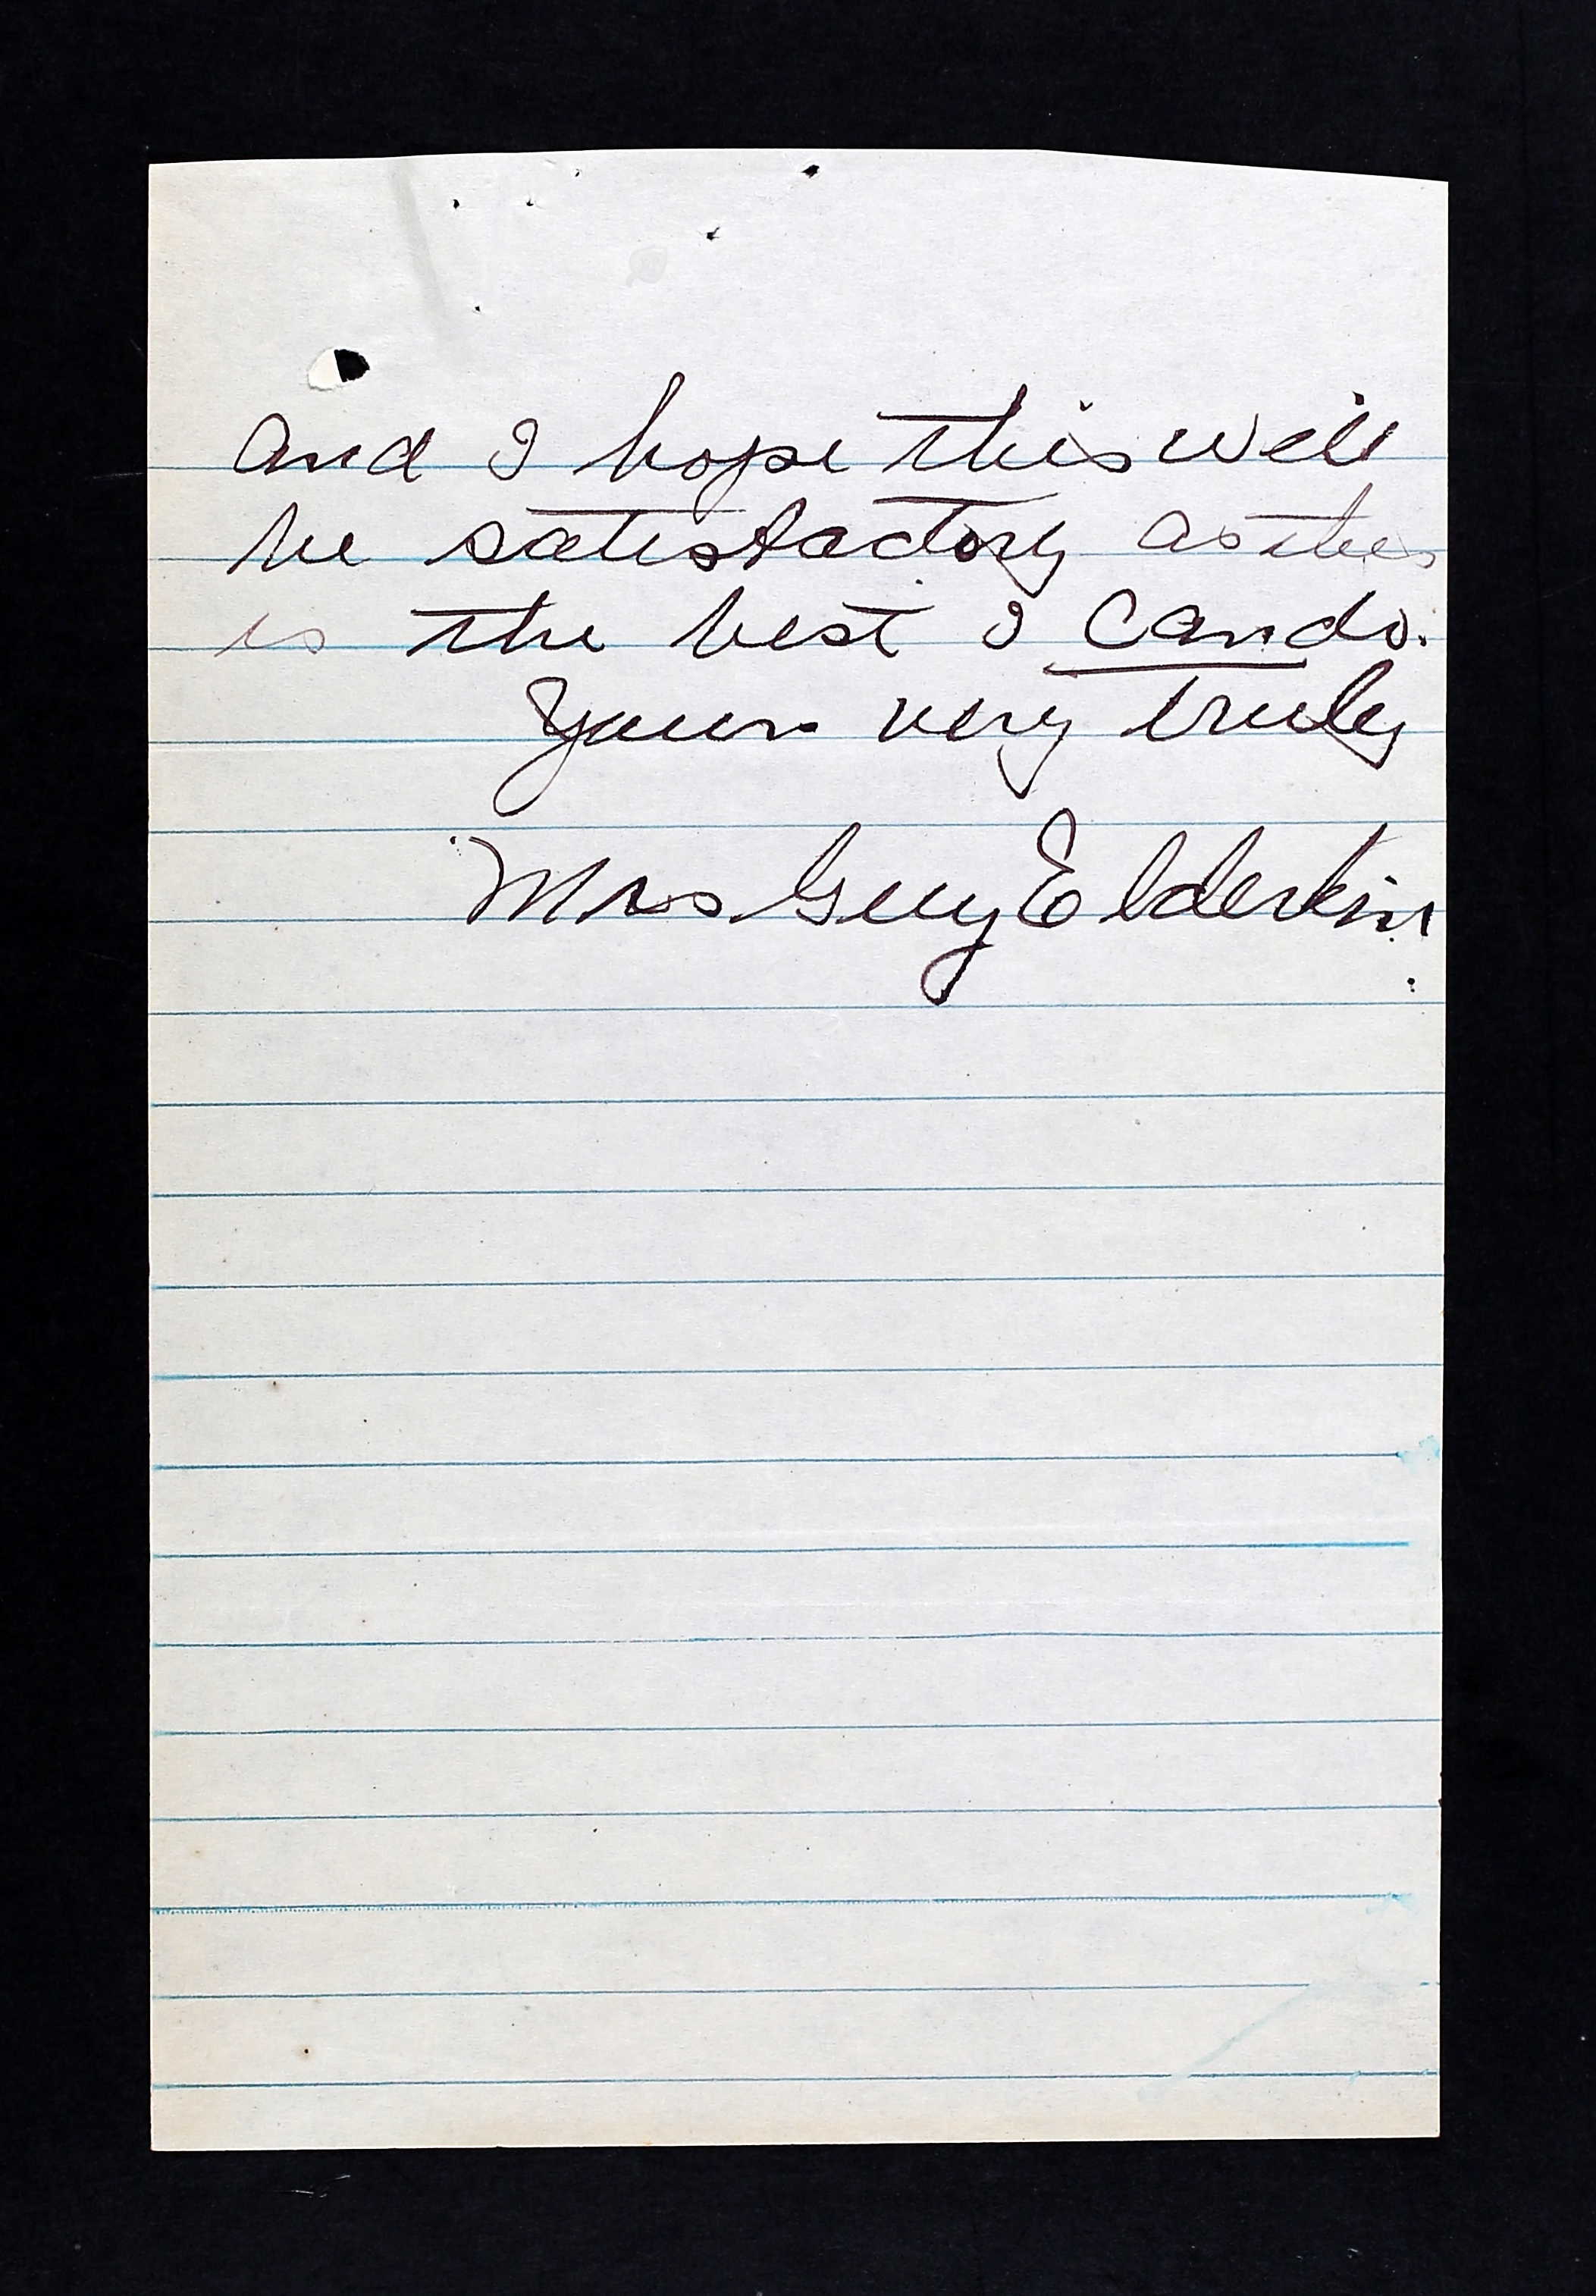 And I hope this will
be satisfactory as this
is the best I can do.
Yours very truly
Mrs Guy Elderkin